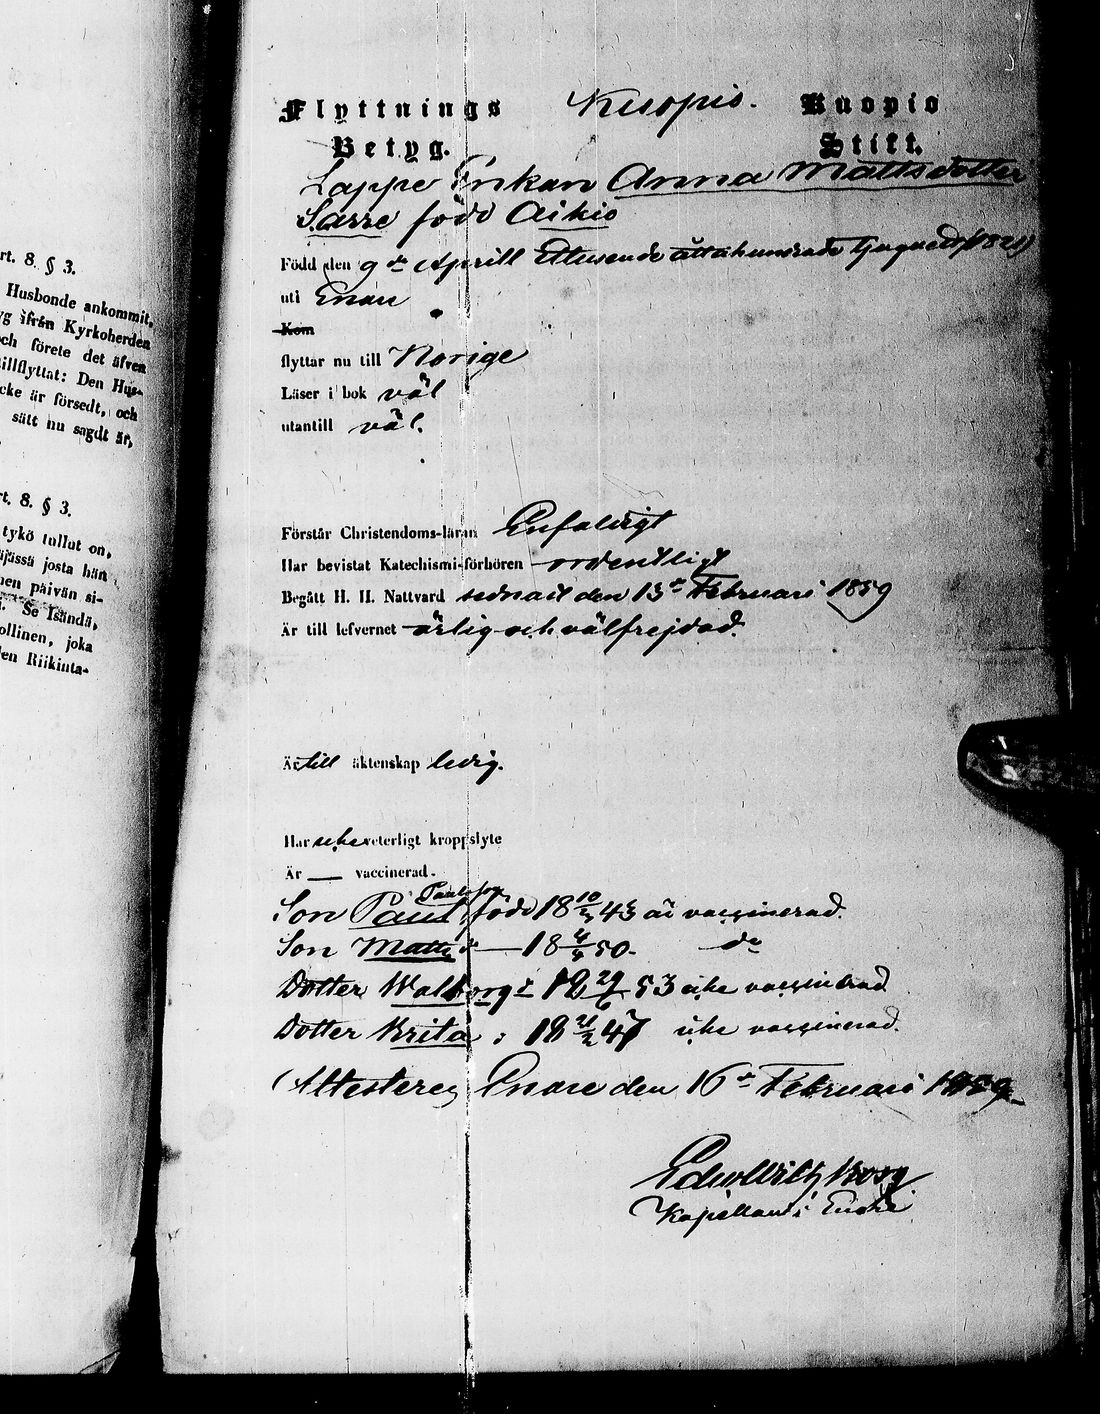 rt. 8. § 3.
Husbonde ankommit,
yg ifrån Kyrkoherden
och förete det äfven
tillflyttat: Den Hus-
icke är försedt, och
sätt nu sagdt är,
rt. 8. § 3.
tykö tullut on,
äjässä josta hän
nen päivän si-
Se Isändä,
ollinen, joka
len Riikinta-
Flyttnings Kuopio. Kuopio
Betyg. Stift.
Lappe Enkan Anna Mattsdotter
Sarre född Aikio
Född den 9de Aprill Ettusende åttahundrade
uti Enare
Kom
flyttar nu till Norige
Läser i bok väl
utantill väl.
Förstår Christendoms-läran Enfaldigt
Har bevistat Katechismi-förhören ordentligt
Begått H. H. Nattvard sednast den 13de Februari 1859
Är till lefvernet ärlig och välfrejdad.
Är till äktenskap ledig.
Har icke veterligt kroppslyte
Är — vaccinerad.
Paulsson
Son Paul, född 18 10/3 43 är vaccinerad.
Son Matts d: — 18 4/4 50. do
Dotter Walborg d: 18 29/6 53 icke vaccinerad
Dotter Brita : 18 21/2 47 icke vaccinerad.
Attesterey Enare den 16de Februari 1859
Edv Wilh Borg
Kapellan i Enare